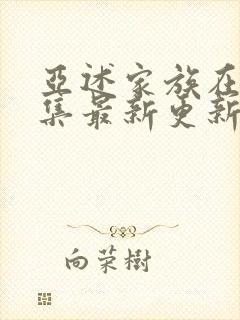 亞述家族在
集最新更新
向荣樹